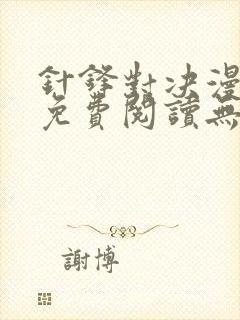 針鋒對決漫
免費閱讀無
謝博